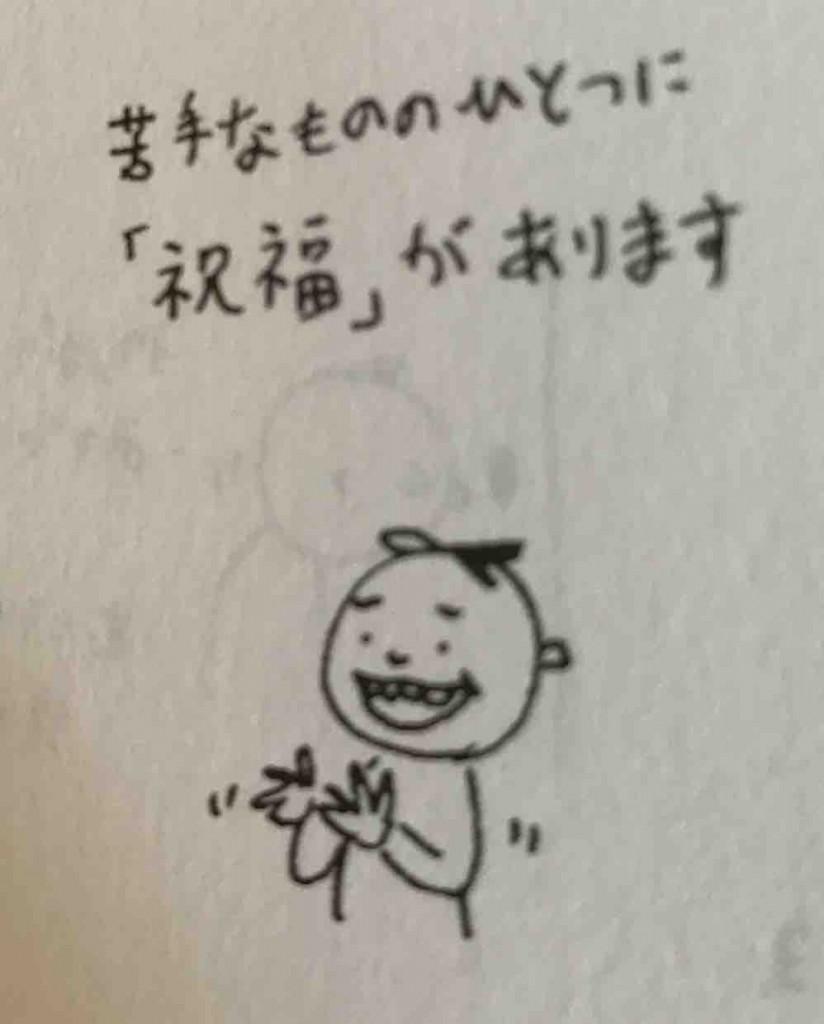 苦手なもののひとつに
「祝福」があります